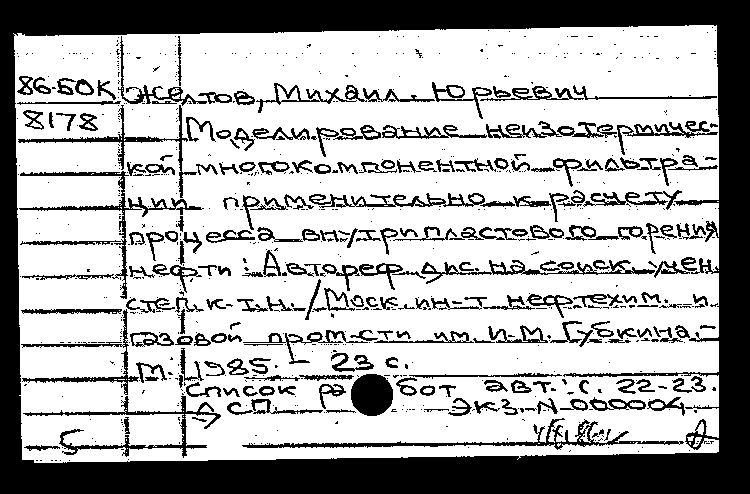 86-БОК Желтов, Михаил Юрьевич
8178 Моделирование неизотермичес-
кой многокомпонентной фильтра-
ции применительно к расчету
процесса внутрипластового горения
нефти: Автореф. дис. на соиск. учен.
степ. к.т.н. / Моск. ин-т нефтехим. и
газовой пром-сти им. И.М. Губкина.-
М. 1985. - 23 с.
Список работ авт.: с. 22-23.
ДСП. Экз. N 000004.
5